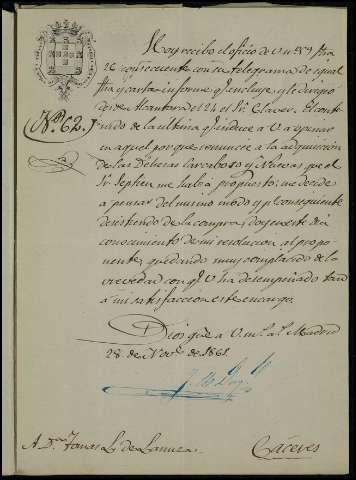 Hoy recibo el oficio de V. n.º 83 fha
26 consecuente con su telegrama de igual
fha y carta informe q.e incluye, q.e le dirigió
desde Alcantara el 24 el Sr. Claver. El conte
N.º 62.
nido de la ultima q.e induce a V. a opinar
en aquel por que renuncie a la adquisicion
de las Dehesas Carabozo y Nuevas que el
Sr. Stephen me había propuesto; me decide
a pensar del mismo modo y p.r consiguiente
desistiendo de la compra, doy en este dia
conocimiento de mi resolucion al propo-
nente, quedando muy complacido de la
brevedad con q.e V. ha desempeñado tan
a mi satisfaccion este encargo.
Dios gue. a V. m.s a.s Madrid
28 de Nov.e de 1861.
A D.n Tomas L. de Lanuza.
Cáceres